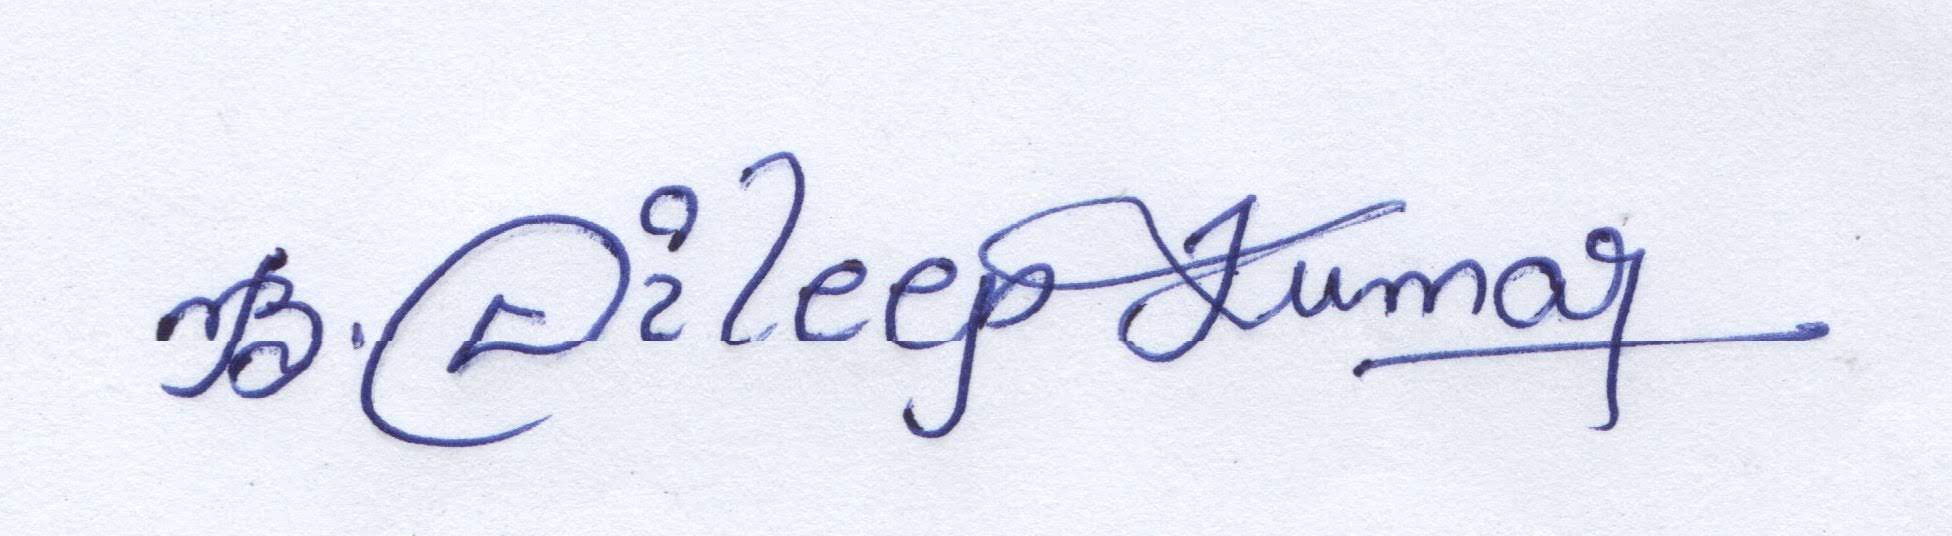 B. Dileep Kumar